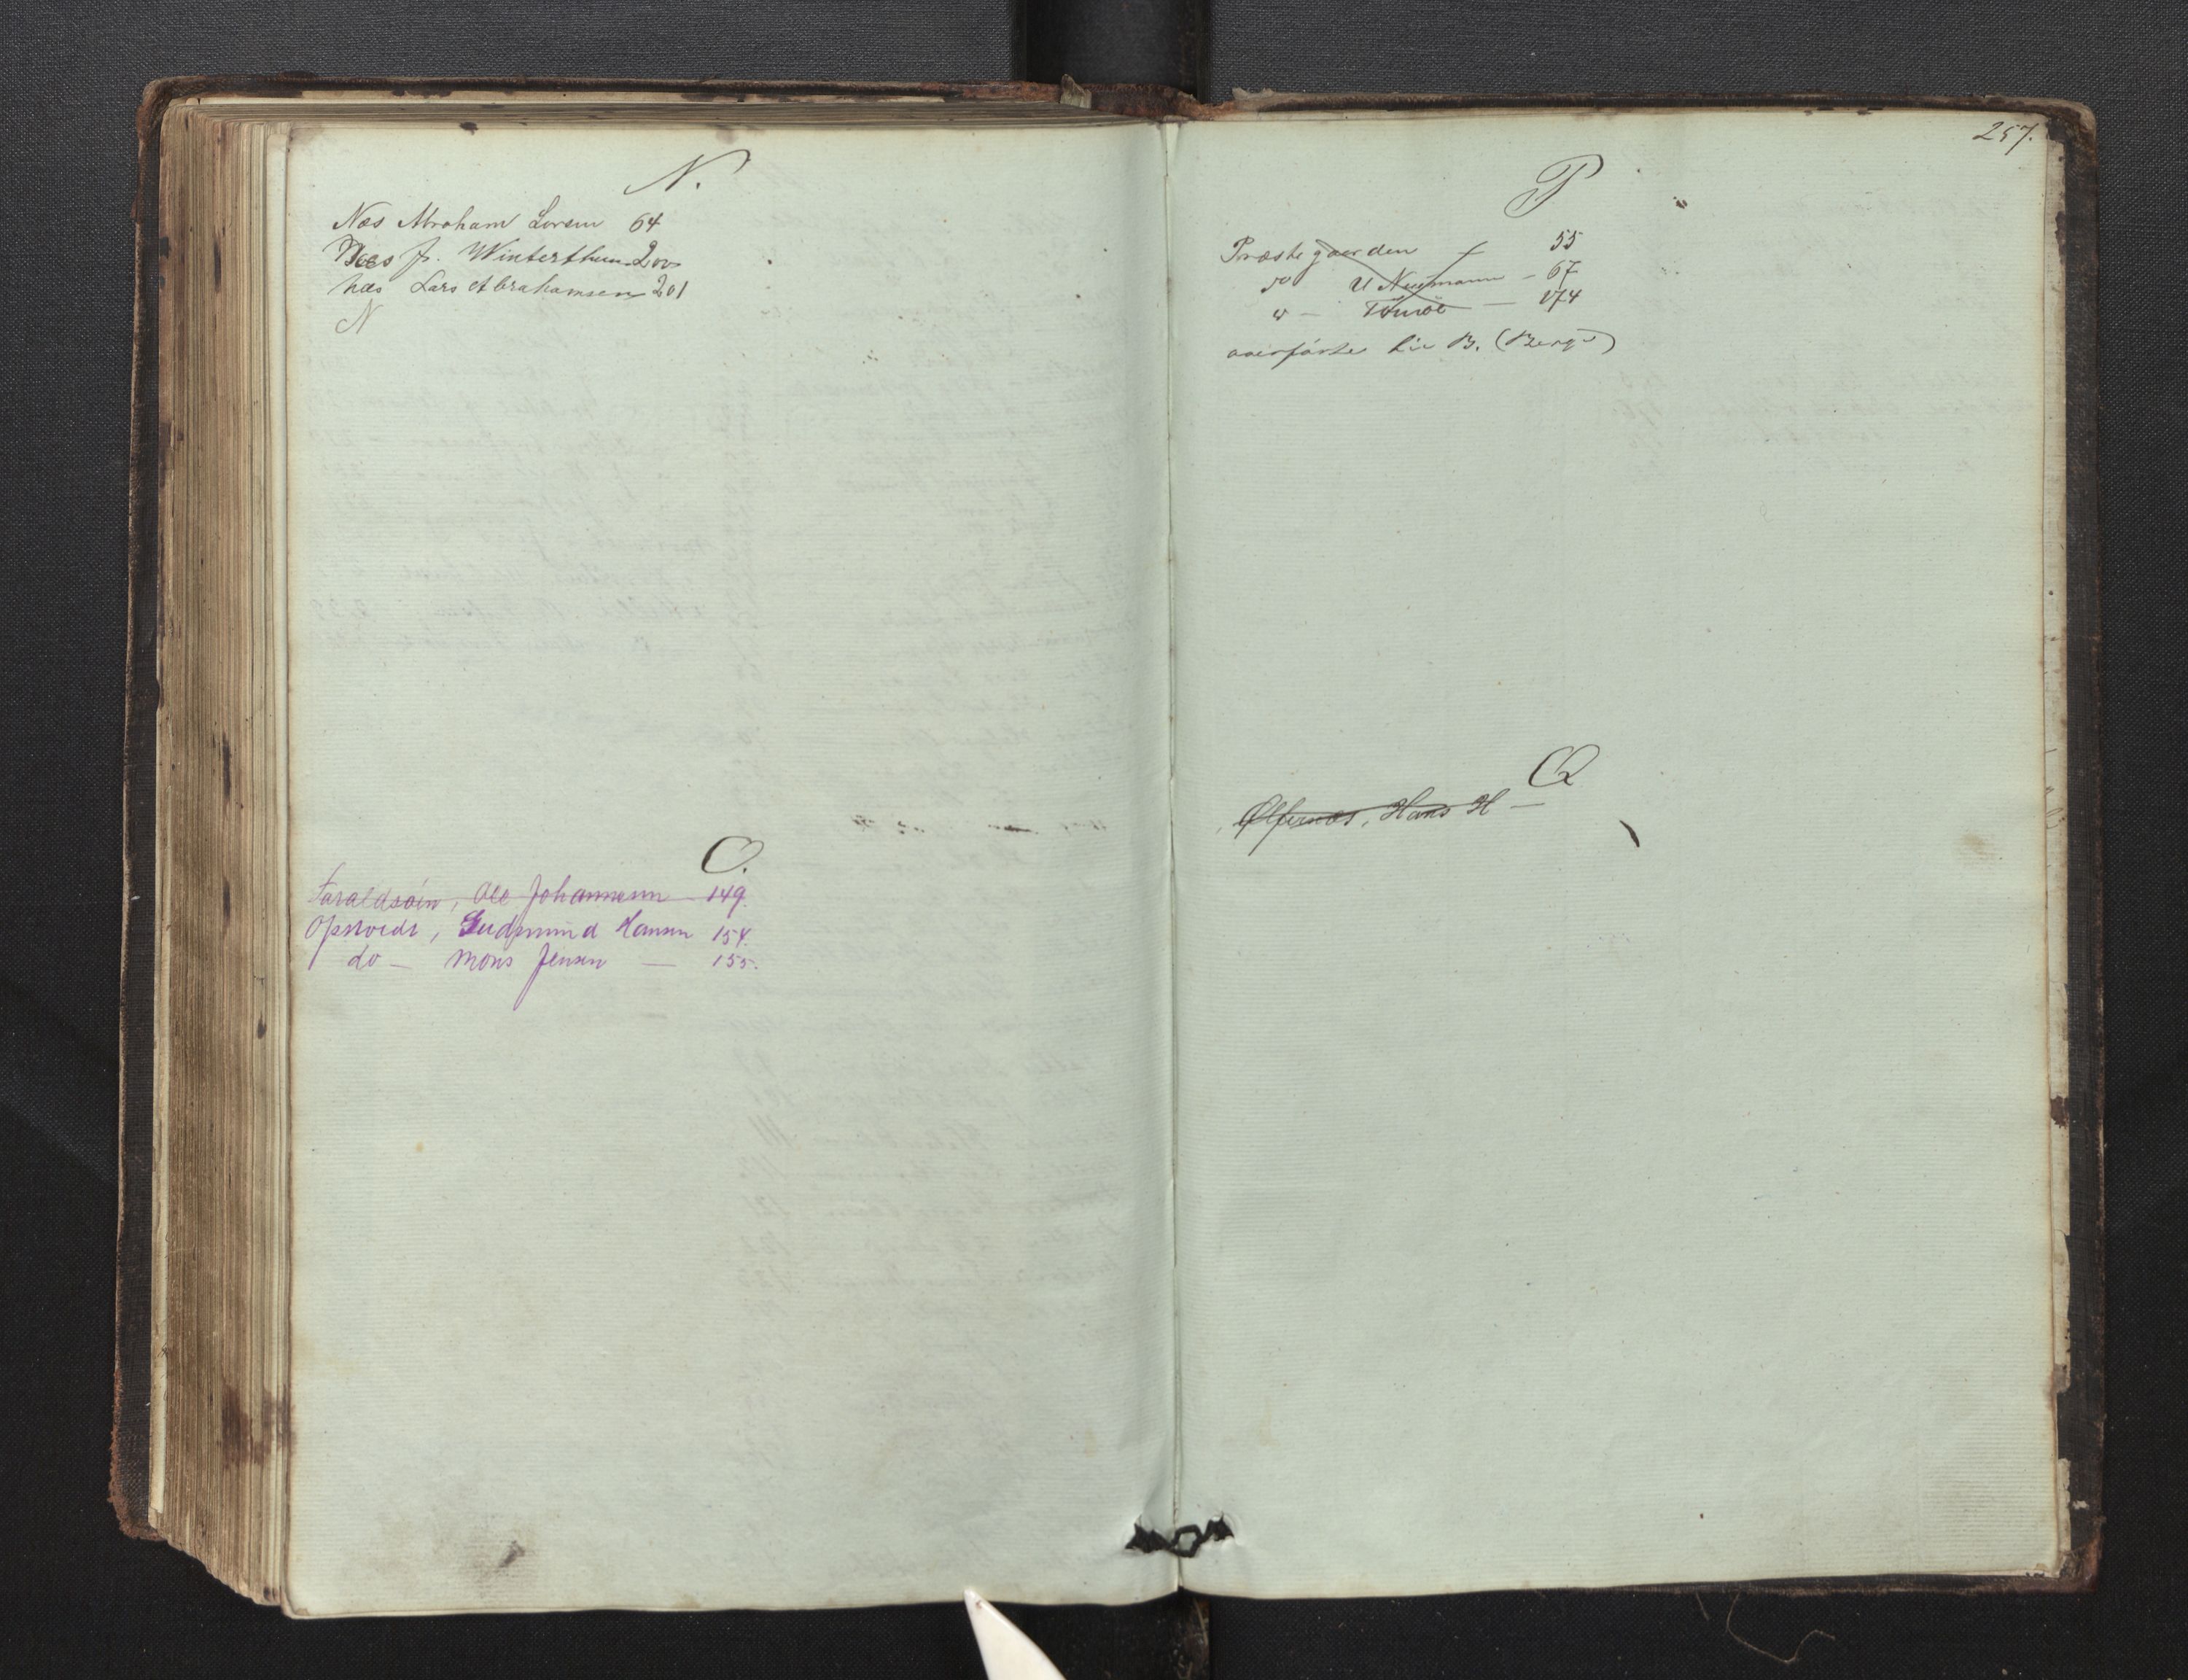 N.
Næs Abraham Larsen 64
Næs J. Winterthun 200
Næs Lars Abrahamsen 201
N
O.
Faraldsøin, Ole Johannesen 149.
Opstvedt, Gudmund Hansen 154.
do — Mons Jensen — 155.
257.
P
Præstegaarden 55
do U Neumann — 67
— 174
overførte Lit B. (Berge)
Q
Hans H —